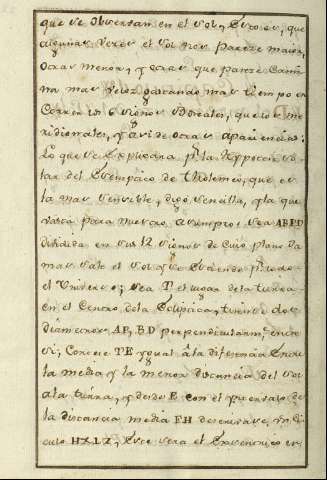 que se observan en el Sol, Esto es, que
algunas veces el Sol nos parece maior,
otras menor, y otras que parece Cami
na mas veloz gastando mas tiempo en
Correr los 6 signos Boreales, que los me
ridionales, y assi de otras apariencias:
Lo que se explicara pr. la Hyppotesis so
lar del Systema de Tholomeo, que es
la mas sensible, digo sencilla, y la que
basta para nuestro assumpto: sea ABPD
dividida en sus 12 signos de cuio plano Ja
mas sale el Sol y se estiende pr. todo
el Universo; sea T el lugar de la tierra
en el Centro de la Ecliptica, tirense dos
diametros AP, BD perpendiculares entre
si; Cortese TE ygual â la diferencia Entre
la media y la menor distancia del Sol
a la tierra, y desde E con el yntervalo de
la distancia media EH descrivase, un Cir
culo HXLZ, Este sera el Excentrico en